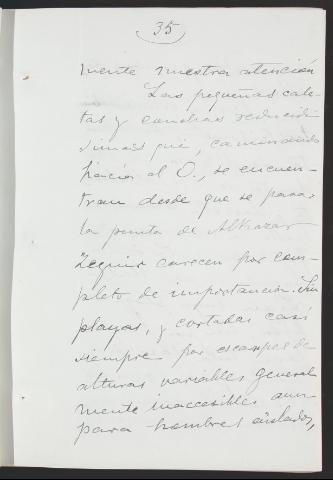 35
mente nuestra atención
Las pequeñas cale-
tas y conchas reducidí-
simas que, caminando
hacia el O., se encuen-
tran desde que se pasa
la punta de
Zeguir carecen por com-
pleto de importancia. Sin
playas, y cortadas casi
siempre por escarpes de
alturas variables general-
mente inaccesibles aun
para hombres aislados,